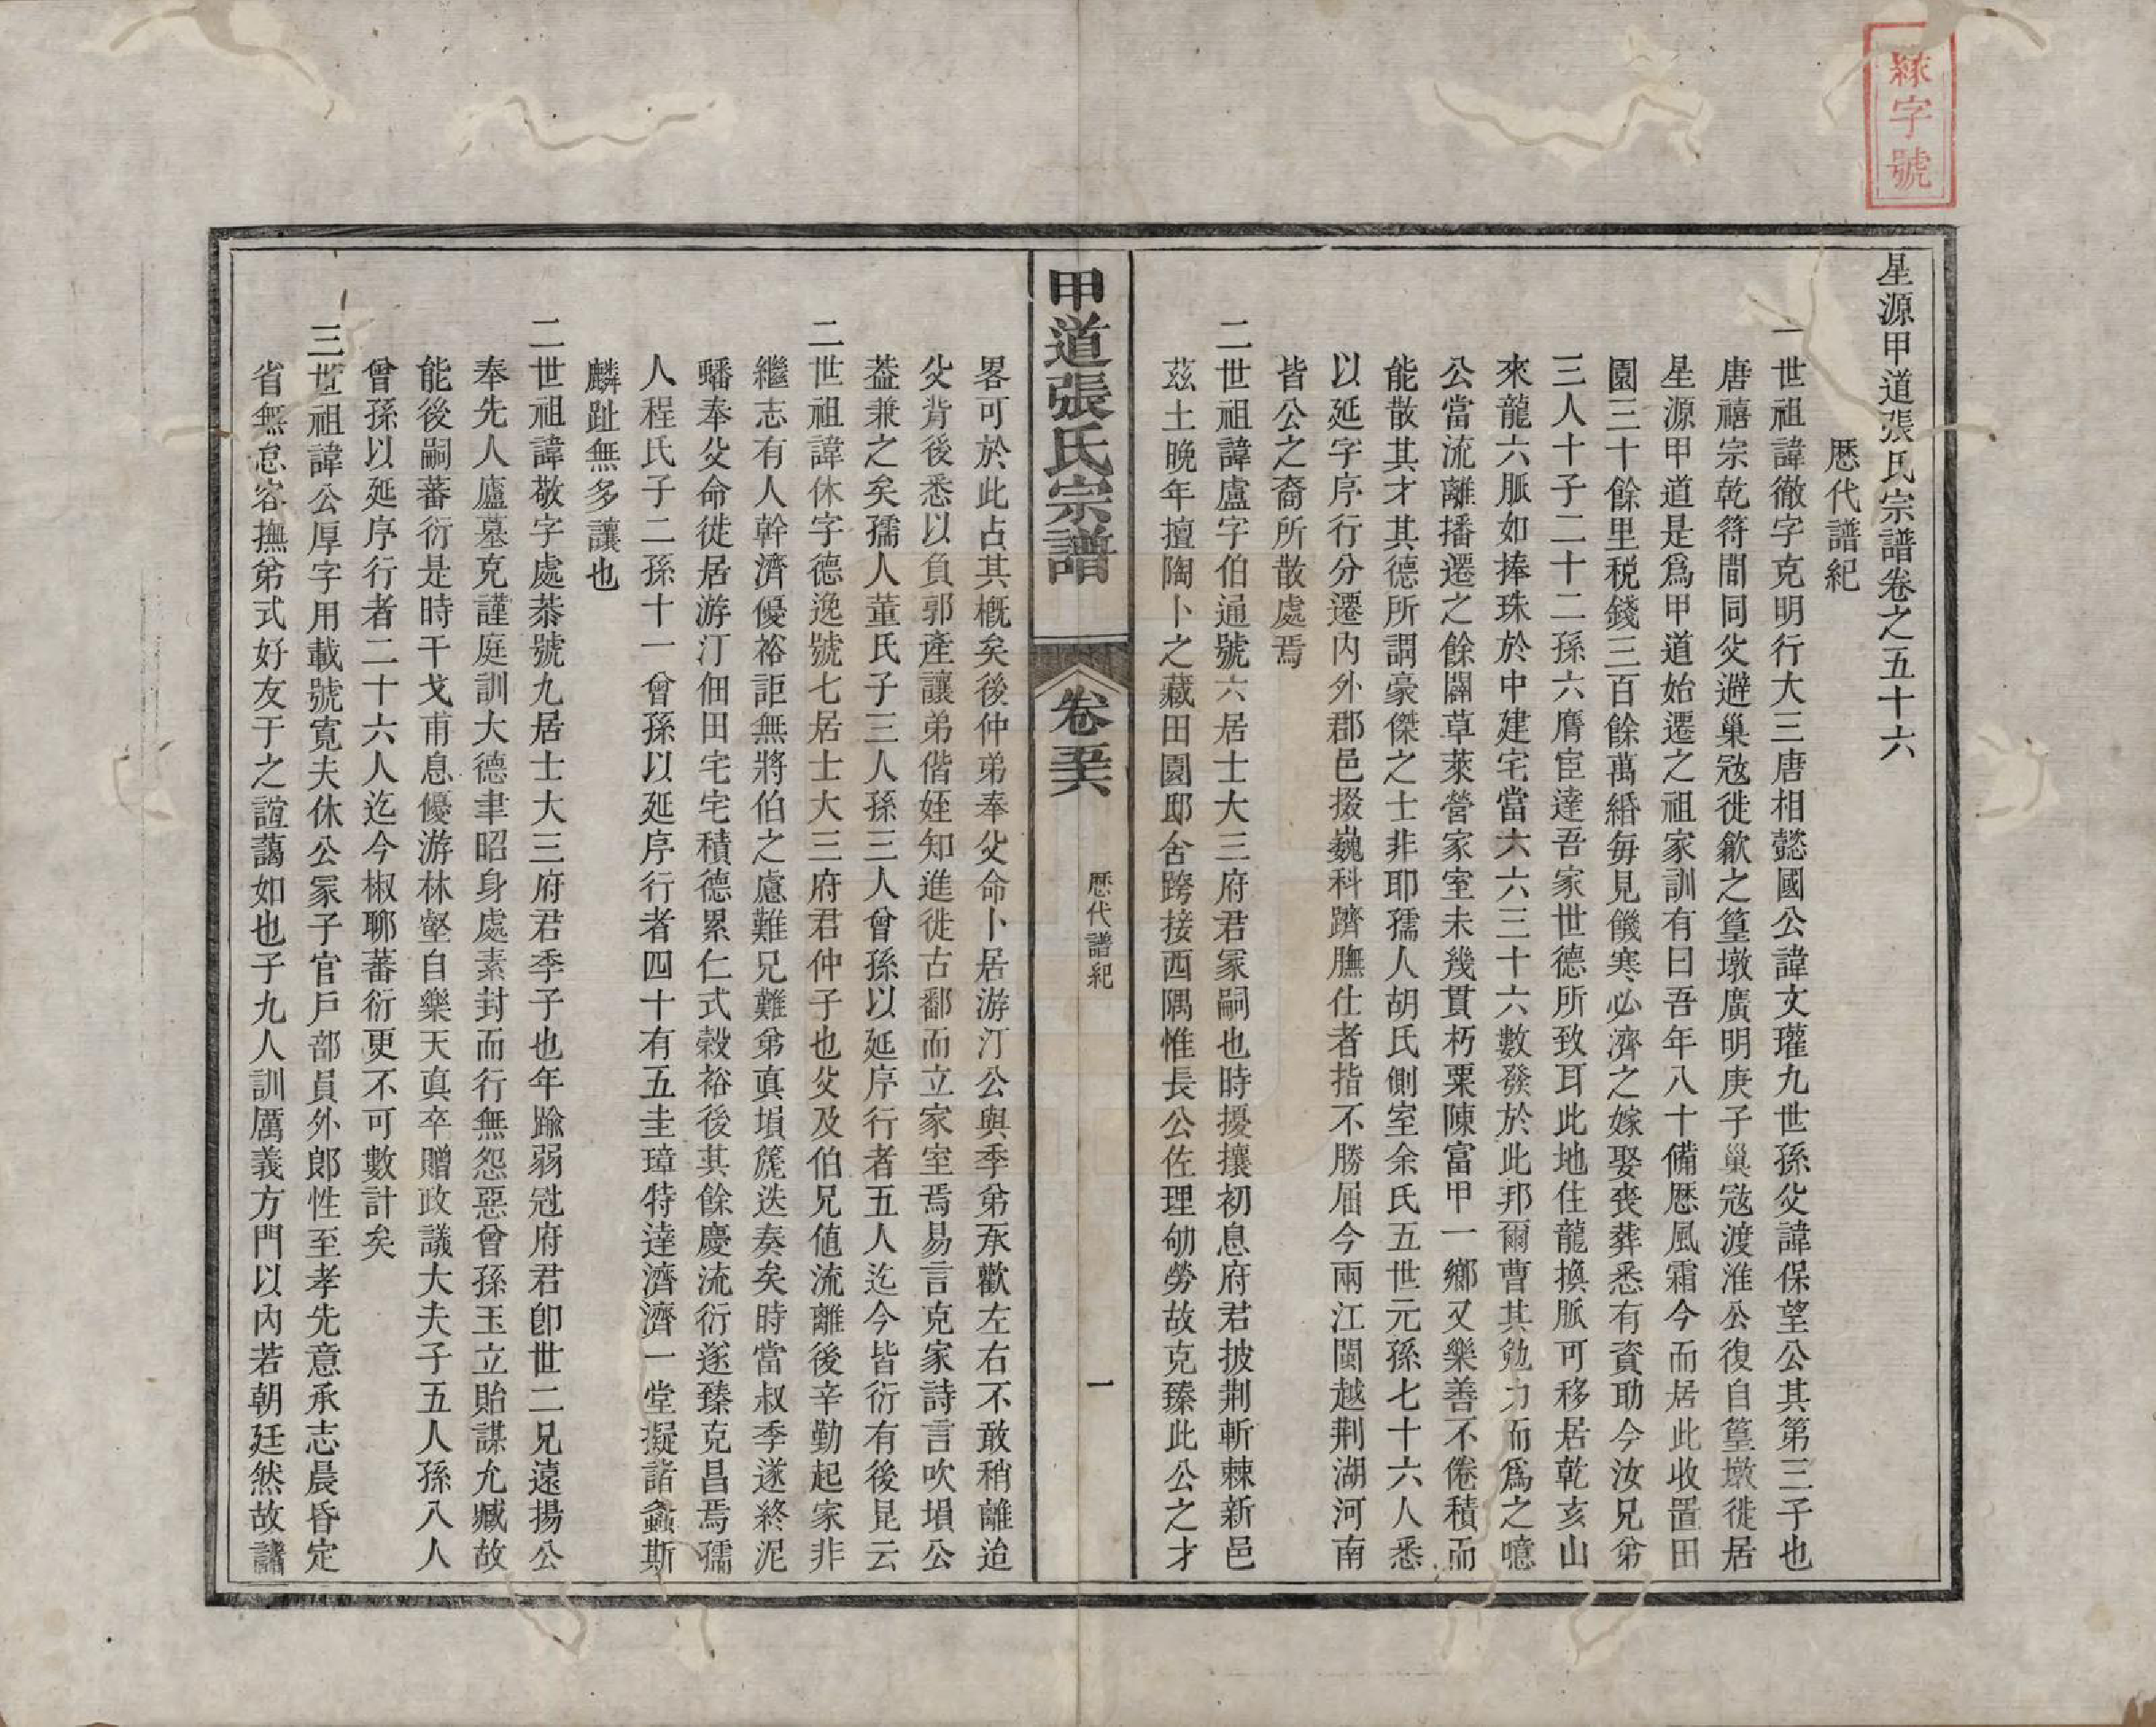 字號
星源甲道張氏宗譜卷之五十六
歷代譜紀
一世祖諱徹字克明行大三唐相懿國公諱文瓘九世孫父諱保望公其第三子也
唐禧宗乾符間同父避巢寇徙歙之篁墩廣明庚子巢寇渡淮公復自篁墩徙居
星源甲道是爲甲道始遷之祖家訓有曰吾年八十備歷風霜今而居此收置田
園三十餘里税錢三百餘萬緡每見饑寒必濟之嫁娶喪葬悉有資助今汝兄弟
三人十子二十二孫六膺宦達吾家世德所致耳此地住龍換脈可移居乾亥山
來龍六脈如捧珠於中建宅當六六三十六數發於此邦爾曹其勉力而爲之噫
公當流離播遷之餘闢草萊營家室未幾貫朽粟陳富甲一鄉又樂善不倦積而
能散其才其德所謂豪傑之士非耶孺人胡氏側室余氏五世元孫七十六人悉
以延字序行分遷內外郡邑掇巍科躋膴仕者指不勝屈今兩江閩越荆湖河南
皆公之裔所散處焉
二世祖諱盧字伯通號六居士大三府君冢嗣也時擾攘初息府君披荆斬棘新邑
茲土晚年擅陶卜之藏田園邸舍跨接西隅惟長公佐理劬勞故克臻此公之才
甲道張氏宗譜
卷五十六
歷代譜紀
一
畧可於此占其槪矣後仲弟奉父命卜居游汀公與季弟承歡左右不敢稍離迨
父背後悉以負郭產讓弟偕姪知進徙古鄱而立家室焉易言克家詩言吹塤公
葢兼之矣孺人董氏子三人孫三人曾孫以延序行者五人迄今皆衍有後昆云
二世祖諱休字德逸號七居士大三府君仲子也父及伯兄值流離後辛勤起家非
繼志有人幹濟優裕詎無將伯之慮難兄難弟眞塤篪迭奏矣時當叔季遂終泥
蟠奉父命徙居游汀佃田宅宅積德累仁式穀裕後其餘慶流衍遂臻克昌焉孺
人程氏子二孫十一曾孫以延序行者四十有五圭璋特達濟濟一堂擬諸螽斯
麟趾無多讓也
二世祖諱敬字處恭號九居士大三府君季子也年踰弱冠府君卽世二兄遠揚公
奉先人廬墓克謹庭訓大德聿昭身處素封而行無怨惡曾孫玉立貽謀允臧故
能後嗣蕃衍是時干戈甫息優游林壑自樂天眞卒贈政議大夫子五人孫八人
曾孫以延序行者二十六人迄今椒聊蕃衍更不可數計矣
三世祖諱公厚字用載號寬夫休公冢子官戶部員外郎性至孝先意承志晨昏定
省無怠容撫弟式好友于之誼藹如也子九人訓厲義方門以內若朝廷然故諸